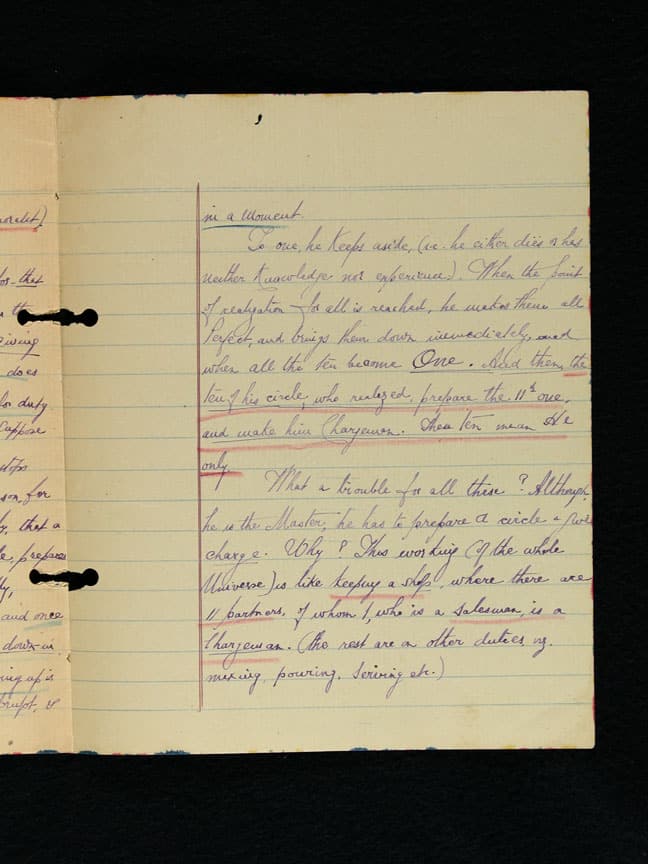 oralist)
for that
n the
giving
does
for duty.
Suppose
stops
son, for
by, that a
le, prepares
lly,
and once
down in
ing up is
brupt, &
in a moment.
To one, he keeps aside, (i.e. he either dies or has
neither knowledge nor experience). When the point
of realization for all is reached, he makes them all
Perfect, and brings them down immediately, and
when all the ten become One. And then, the
ten of his circle, who realized, prepare the 11th one,
and make him Chargeman. These ten mean He
only.
What a trouble for all these? Although,
he is the Master, he has to prepare a circle & give
charge. Why? This working (of the whole
Universe) is like keeping a shop, where there are
11 partners, of whom 1, who is a salesman, is a
Chargeman. (the rest are on other duties vz.
mixing, pouring, serving etc.)